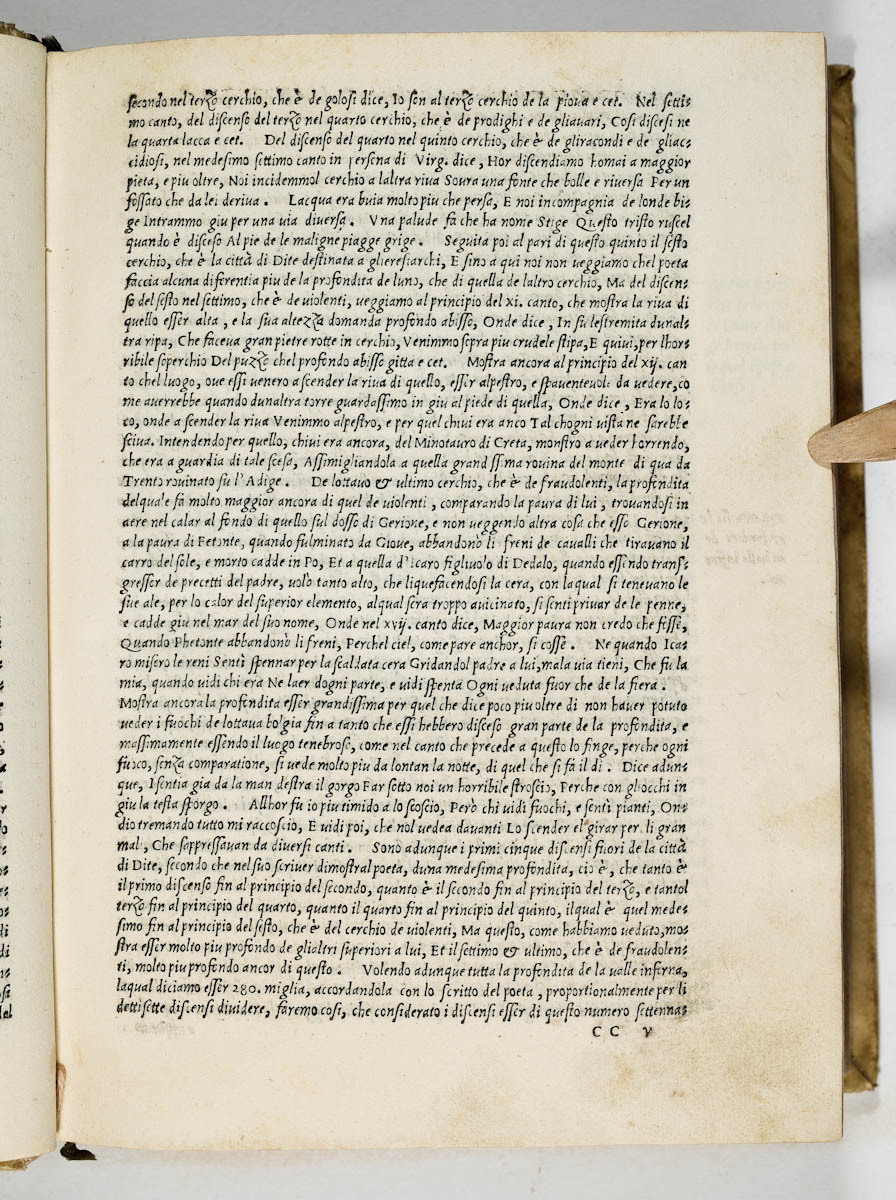 secondo nel terzo cerchio, che è de golosi dice, Io son al terzo cerchio de la piova e cet. Nel setti-
mo canto, del discenso del terzo nel quarto cerchio, che è de prodighi e de gliavari, Cosi discesi ne
la quarta lacca e cet. Del discenso del quarto nel quinto cerchio, che è de gliracondi e de gliac-
cidiosi, nel medesimo settimo canto in persona di Virg. dice, Hor discendiamo homai a maggior
pieta, e piu oltre, Noi incidemmol cerchio a laltra riva Soura una fonte che bolle e riversa Per un
fossato che da lei deriva. Lacqua era buia molto piu che persa, E noi incompagnia de londe bi-
ge Intrammo giu per una via diversa. Vna palude fa che ha nome Stige Questo tristo ruscel
quando è disceso Al pie de le maligne piagge grige. Seguita poi al pari di questo quinto il sesto
cerchio, che è la città di Dite destinata a glieresiarchi, E sino a qui noi non veggiamo chel poeta
faccia alcuna diferentia piu de la profondita de luno, che di quella de laltro cerchio, Ma del discen-
so del sesto nel settimo, che è de violenti, veggiamo al principio del xi. canto, che mostra la riva di
quello esser alta, e la sua altezza domanda profondo abisso, Onde dice, In su lestremita dunal-
tra ripa, Che faceva gran pietre rotte in cerchio, Venimmo sopra piu crudele stipa, E quivi, per lhor-
ribile soperchio Del puzzo chel profondo abisso gitta e cet. Mostra ancora al principio del xij. can
to chel luogo, ove essi venero a scender la riva di quello, esser alpestro, e spaventevole da vedere, co
me averrebbe quando dunaltra torre guardassimo in giu al piede di quella, Onde dice, Era lo lo-
co, onde a scender la riva Venimmo alpestro, e per quel chivi era anco Tal chogni vista ne sarebbe
sciva. Intendendo per quello, chivi era ancora, del Minotauro di Creta, monstro a veder horrendo,
che era a guardia di tale scesa, Assimigliandola a quella grandissima rovina del monte di qua da
Trento rovinato su l'Adige. De lottavo & ultimo cerchio, che è de fraudolenti, la profondita
delquale fa molto maggior ancora di quel de violenti, comparando la paura di lui, trovandosi in
aere nel calar al fondo di quello sul dosso di Gerione, e non veggendo altra cosa che esso Gerione,
a la paura di Fetonte, quando fulminato da Giove, abbandonò li freni de cavalli che tiravano il
carro del sole, e morto cadde in Po, Et a quella d'Icaro figlivolo di Dedalo, quando essendo trans-
gressor de precetti del padre, volò tanto alto, che liquefacendosi la cera, con laqual si tenevano le
sue ale, per lo calor del superior elemento, alqual sera troppo avicinato, si senti privar de le penne,
e cadde giu nel mar del suo nome, Onde nel xvij. canto dice, Maggior paura non credo che fosse,
Quando Phetonte abbandonò li freni, Perchel ciel, come pare anchor, si cosse. Ne quando Ica-
ro misero le reni Sentì spennar per la scaldata cera Gridandol padre a lui, mala via tieni, Che fu la
mia, quando vidi chi era Ne laer dogni parte, e vidi spenta Ogni veduta fuor che de la fiera.
Mostra ancora la profondita esser grandissima per quel che dice poco piu oltre di non haver potuto
veder i fuochi de lottava bolgia fin a tanto che essi hebbero disceso gran parte de la profondita, e
massimamente essendo il luogo tenebroso, come nel canto che precede a questo lo finge, perche ogni
fuoco, senza comparatione, si vede molto piu da lontan la notte, di quel che si fa il di. Dice adun-
que, I sentia gia da la man destra il gorgo Far sotto noi un horribile stroscio, Perche con gliocchi in
giu la testa sporgo. Allhor fu io piu timido a lo scoscio, Però chi vidi fuochi, e sentì pianti, On-
dio tremando tutto mi raccoscio, E vidi poi, che nol vedea davanti Lo scender el girar per li gran
mali, Che sappressavan da diversi canti. Sono adunque i primi cinque discensi fuori de la città
di Dite, secondo che nel suo scriver dimostral poeta, duna medesima profondita, ciò è, che tanto è
il primo discenso fin al principio del secondo, quanto è il secondo fin al principio del terzo, e tantol
terzo fin al principio del quarto, quanto il quarto fin al principio del quinto, ilqual è quel mede-
simo fin al principio del sesto, che è del cerchio de violenti, Ma questo, come habbiamo veduto, mo-
stra esser molto piu profondo de glialtri superiori a lui, Et il settimo & ultimo, che è de fraudolen-
ti, molto piu profondo ancor di questo. Volendo adunque tutta la profondita de la valle inferna,
laqual diciamo esser 280. miglia, accordandola con lo scritto del poeta, proportionalmente per li
detti sette discensi dividere, faremo cosi, che considerato i discensi esser di questo numero settenna-
CC V